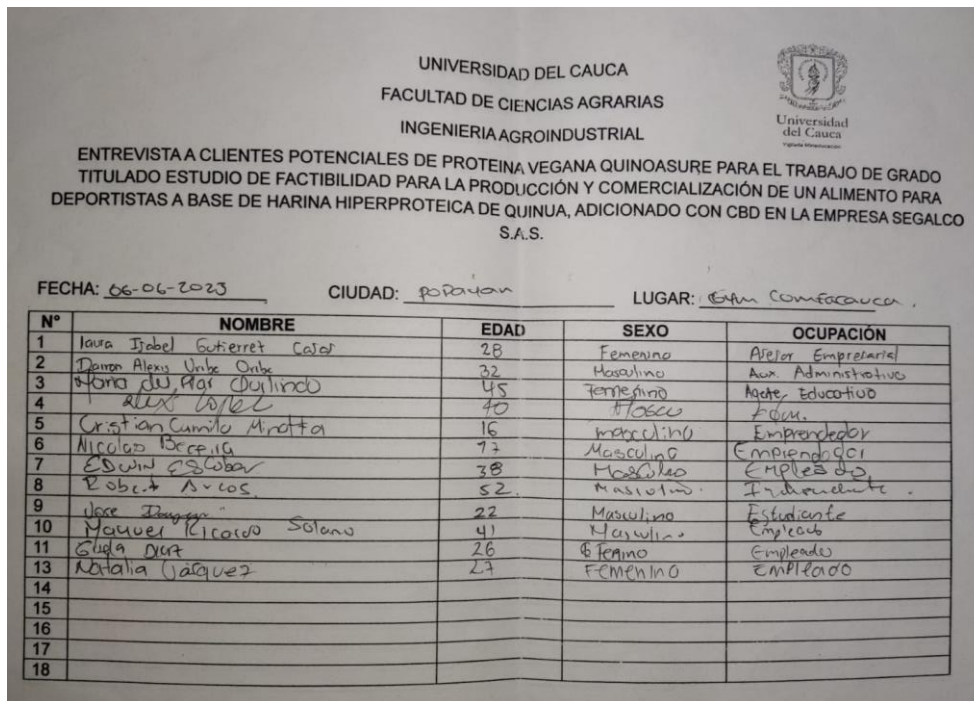 UNIVERSIDAD DEL CAUCA
FACULTAD DE CIENCIAS AGRARIAS
INGENIERIA AGROINDUSTRIAL
Universidad
del Cauca
ENTREVISTA A CLIENTES POTENCIALES DE PROTEINA VEGANA QUINOASURE PARA EL TRABAJO DE GRADO
TITULADO ESTUDIO DE FACTIBILIDAD PARA LA PRODUCCIÓN Y COMERCIALIZACIÓN DE UN ALIMENTO PARA
DEPORTISTAS A BASE DE HARINA HIPERPROTEICA DE QUINUA, ADICIONADO CON CBD EN LA EMPRESA SEGALCO
S.A.S.
FECHA: 06-06-2023 CIUDAD: POPayan LUGAR: Gym Comfacauca.
N° NOMBRE EDAD SEXO OCUPACIÓN
1 laura Isabel Gutierret 28 Femenino Asesor Empresarial
2 Alexis Uribe 32 Masculino Aux. Administrativo
3 Maria del Pilar Quilindo 45 Femenino Educativo
4 alex Lopez 40
5 Cristian Camilo Minotta 16 masculino Emprendedor
6 Nicolas Becerra Masculino
7 EDWIN EScobar 38 Empleado
8 Robert Arcos. 52. Masculino.
9 Jose 22 Masculino Estudiante
10 Manuel Ricardo Solano 41 Masculino Empleado
11 Diaz 26 Empleado
13 Natalia Vasquez 27 Femenino Empleado
14
15
16
17
18